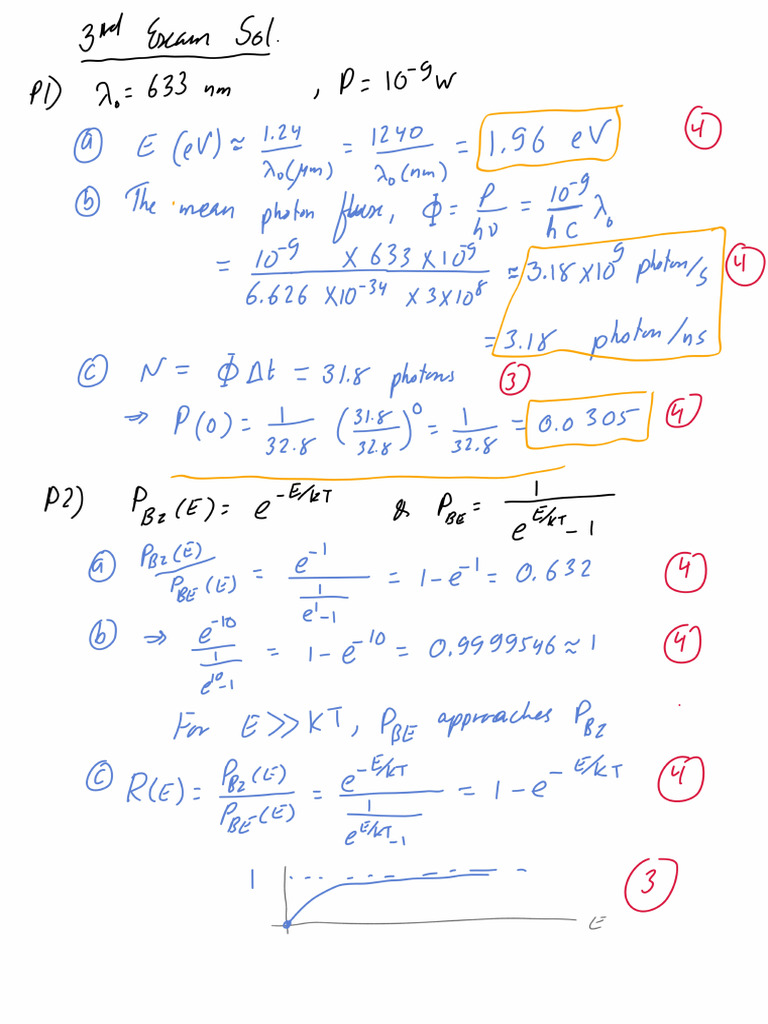 3rd Exam Sol.
P1) λ₀ = 633 nm , P = 10⁻⁹ W
(a) E (eV) ≈ 1.24 / λ₀(μm) = 1240 / λ₀(nm) = 1.96 eV (4)
(b) The mean photon flux, Φ = P / hυ = 10⁻⁹ / hc λ₀
= 10⁻⁹ × 633 × 10⁻⁹ / 6.626 × 10⁻³⁴ × 3 × 10⁸ ≈ 3.18 × 10⁹ photon/s (4)
= 3.18 photon/ns
(c) N = Φ Δt = 31.8 photons (3)
⇒ P(0) = 1 / 32.8 (31.8 / 32.8)⁰ = 1 / 32.8 = 0.0305 (4)
P2) P_Bz(E) = e^(-E/KT) & P_BE = 1 / (e^(E/KT) - 1)
(a) P_Bz(E) / P_BE(E) = e⁻¹ / (1 / (e¹ - 1)) = 1 - e⁻¹ = 0.632 (4)
(b) ⇒ e⁻¹⁰ / (1 / (e¹⁰ - 1)) = 1 - e⁻¹⁰ = 0.9999546 ≈ 1 (4)
For E >> KT, P_BE approaches P_Bz
(c) R(E) = P_Bz(E) / P_BE(E) = e^(-E/KT) / (1 / (e^(E/KT) - 1)) = 1 - e^(-E/KT) (4)
1 (3)
E